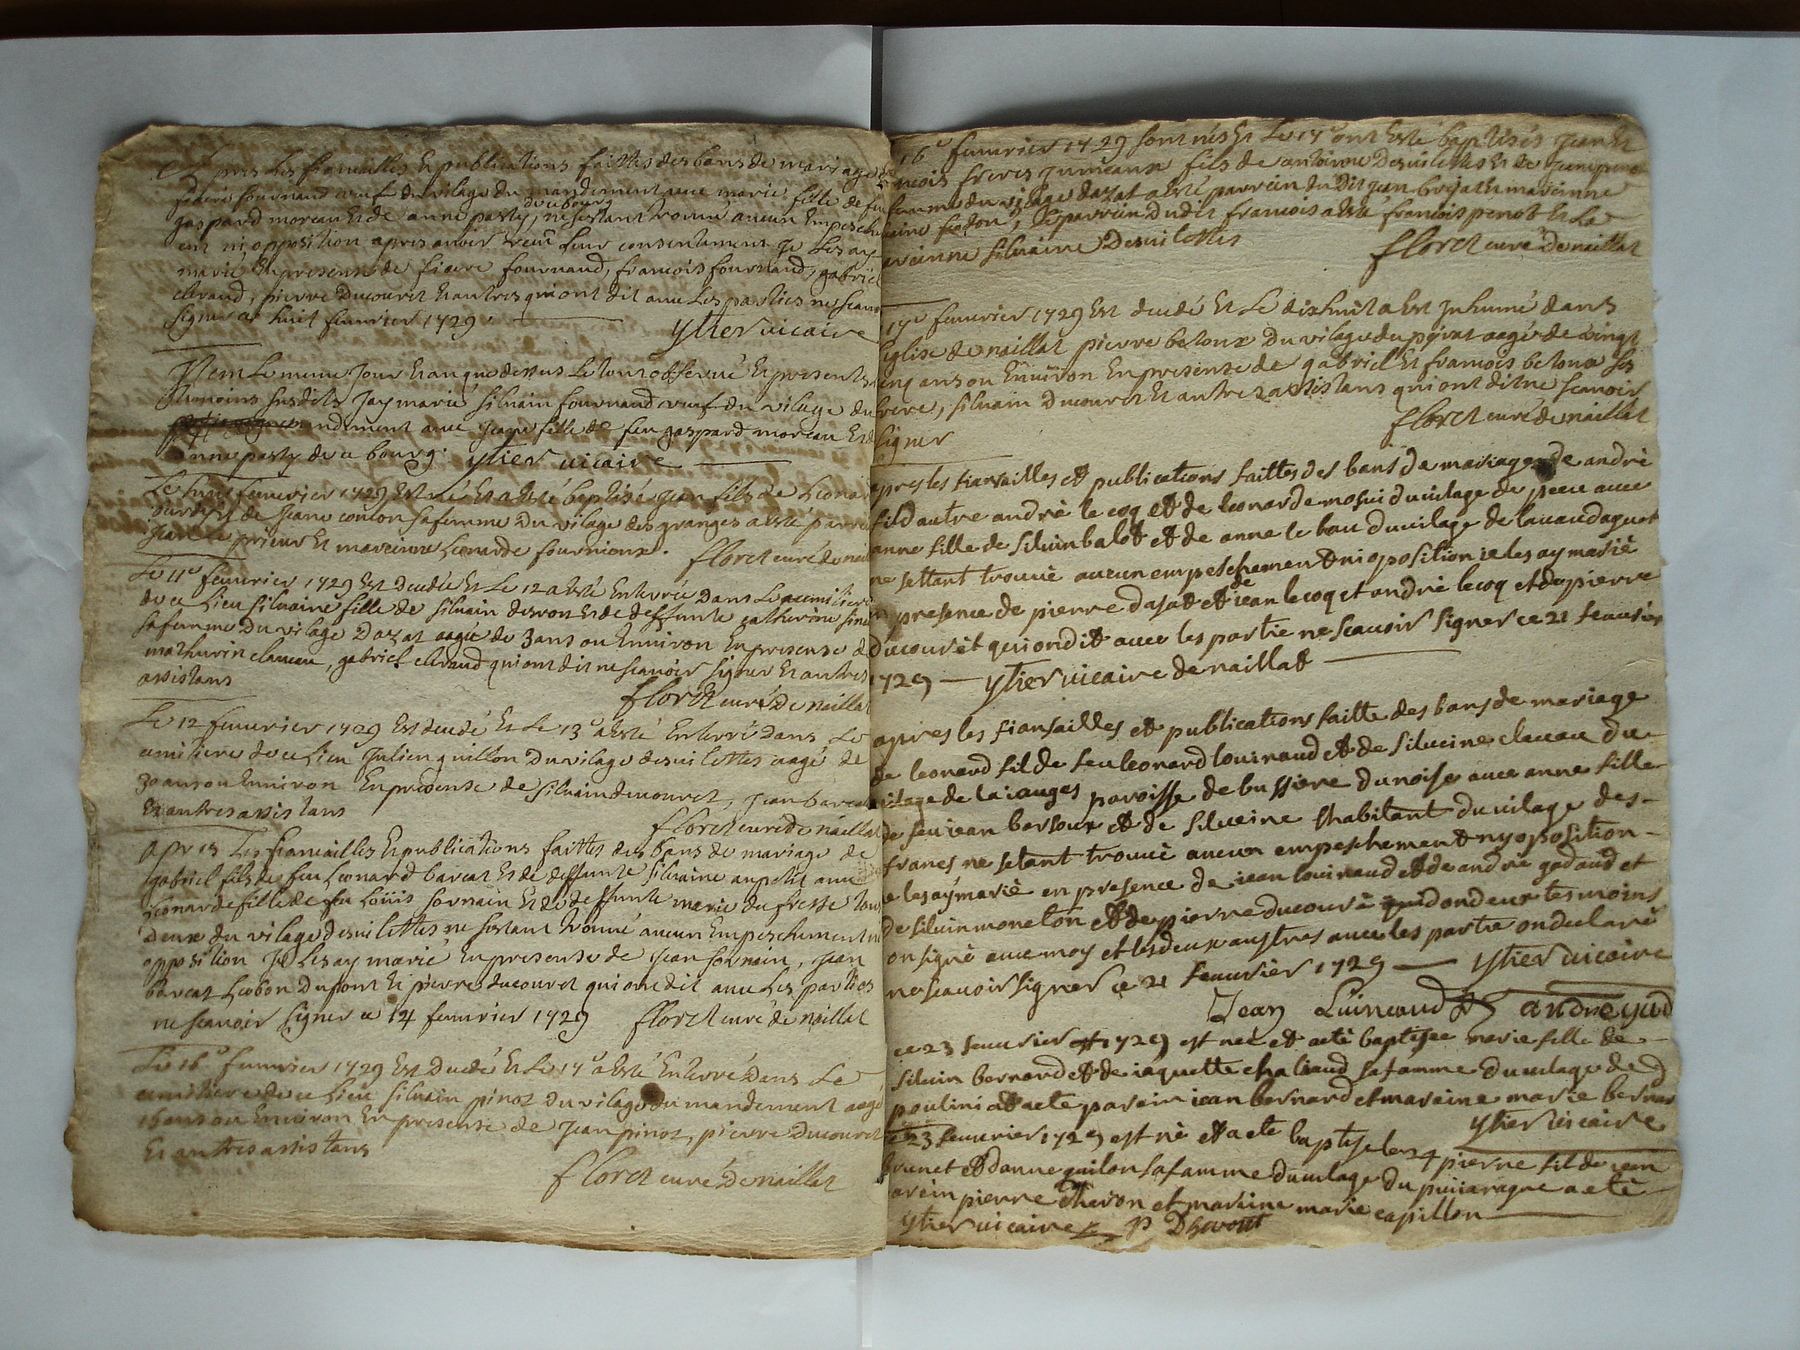 Apres les fiancailles et publications faittes des bans de mariage
fournaud veuf du vilage du mandement avec marie fille de feu
du bourg
gaspard moreau et de anne pasty, ne sestant trouvé aucun empesch
ent ni opposition apres avoir receu leur consentement je les ay
marié en presense de pierre fournaud, francois fournaud, gabriel
claraud, pierre ducouret et autres qui ont dit avec les parties ne scavoir
signer ce huit fevurier 1729.
ytier vicaire
Item le meme jour et an que dessus le tout observé et presents
temoins susdits jay marié silvain fournaud veuf du vilage du
mandement avec jeane fille de feu gaspard moreau et de
anne pasty de ce bourg. ytier vicaire
Le fevurier 1729 est né et a esté baptisé jean fils de leonard
et de jeane coulon sa femme du vilage des granges a esté parrein
jean le prieur et mareinne leonarde fournioux.
floret curé de nail
Le 11e fevurier 1729 est decedé et le 12 a esté enterrée dans le cemitiere
de ce lieu silvaine fille de silvain et de deffunte catherine
sa femme du vilage dazat aagée de 3 ans ou environ en presense de
mathurin claveau, gabriel claraud qui ont dit ne scavoir signer et autres
assistans
floret curé de naillat
Le 12 fevurier 1729 est decedé et le 13e a esté enterré dans le
cemitiere de ce lieu julien guillon du vilage desvilettes aagé de
30 ans ou environ en presense de silvain ducouret, jean barcat
et autres assistans
floret curé de naillat
Apres les fiancailles et publications faittes des bans de mariage de
gabriel fils de feu leonard barcat et de deffunte silvaine aupetit avec
leonarde fille de feu loüis sornain et de deffunte marie dufresse tous
deux du vilage desvilettes ne sestant trouvé aucun empeschement ni
opposition je les ay marié en presense de jean sornain, jean
barcat leobon dupont et pierre ducouret qui ont dit avec les parties
ne scavoir signer ce 14 fevurier 1729 floret curé de naillat
Le 16e fevurier 1729 est decedé et le 17e a esté enterré dans le
cemitiere de ce lieu silvain pinot du vilage du mandement aagé
ans ou environ en presense de jean pinot, pierre ducouret
et autres assistans
floret curé de naillat
16e fevurier 1729 sont nés et le 17e ont esté baptisés jean et
francois freres jumeaux fils de antoine desvilettes et de jeane
femme du vilage dazat a esté parrein dudit jean et mareinne
, le parrein dudit francois a esté francois penot et la
mareinne silvaine desvilettes
floret curé de naillat
17e fevurier 1729 est decedé et le dixhuit a est inhumé dans
leglise de naillat pierre betoux du vilage du peyrat aagé de vingt
cinq ans ou environ en presense de gabriel et francois betoux ses
frere, silvain ducouret et autres assistans qui ont dit ne scavoir
signer
floret curé de naillat
apres les fiansailles et publications faittes des bans de mariage de andrè
fil dautre andrè le coq et de leonarde du vilage de avec
anne fille de silvin balot et de anne le bau du vilage de lavaudaguet
ne settant trouvè aucun empeschement ni oposition ie les ay mariè
de
en presence de pierre dasat et iean lecoq et andrè lecoq et de pierre
ducourèt qui ondit avec les partie ne scavoir signer ce 21 feavrier
1729 — ytier vicaire de naillat
apres les fiansailles et publications faitte des bans de mariage
de leonard fil de feu leonard louinaud et de silveine clavau du
vilage de paroisse de bussiere dunoise avec anne fille
de feu iean barsoux et de silveine thabitant du vilage des
francs ne setant trouvè aucun empeschement ny oposition
ie les ay mariè en presence de iean louinaud et de andrè godaud et
de silvin moneton et de pierre ducourè dond deux tesmoins
on signè avec moy et les deux austres avec les partie on declarè
ne scavoir signer ce 21 feuvrier 1729 — ytier vicaire
Jean andre
ce 23 feuvrier 1729 est née et a etè baptisee marie fille de
silvin bernard et de iaquette chabaud sa famme du vilage de
poulini at a etè parein iean bernard et mareine marie bernar
ytier vicaire
ce 23 feuvrier 1729 est nè et a ete baptisè le 24 pierre fil de iean
brunet et danne guilon sa famme du vilage du a etè
parein pierre et mareine marie capillon
ytier vicaire